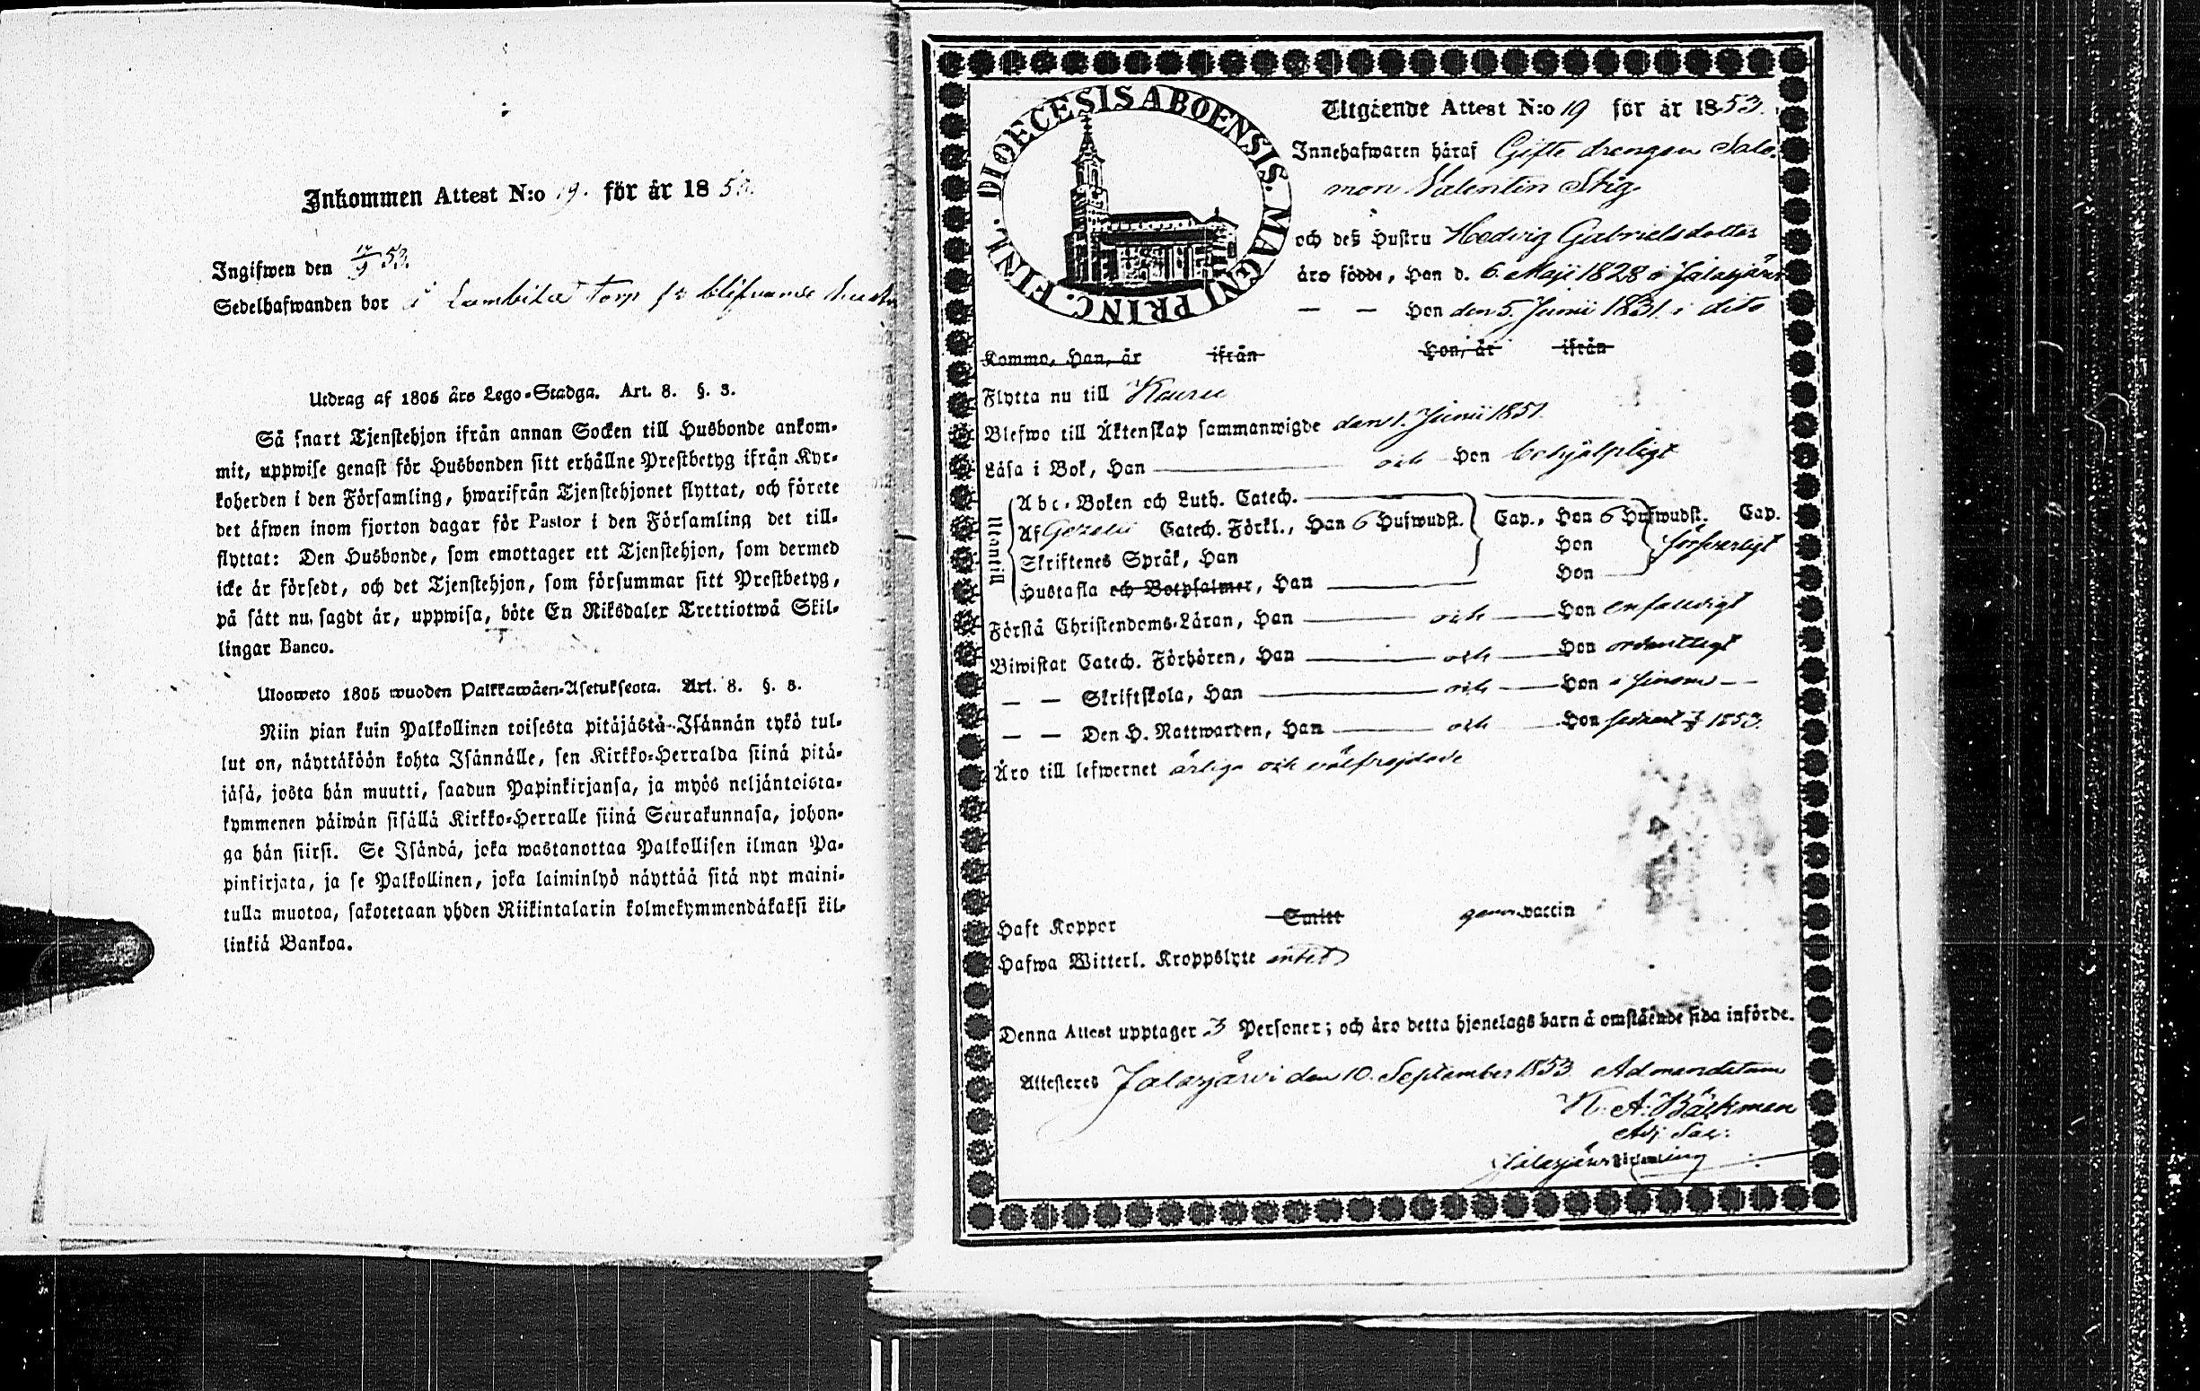 Inkommen Attest N:o 19. för år 1853.
Ingifwen den 53.
Sedelhafwanden bor å torp
Utdrag af 1805 års Lego-Stadga. Art. 8. §. 3.
Så snart Tjenstehjon ifrån annan Socken till Husbonde ankom-
mit, uppwise genast för Husbonden sitt erhållne Prestbetyg ifrån Kyr-
koherden i den Församling, hwarifrån Tjenstehjonet flyttat, och förete
det äfwen inom fjorton dagar för Pastor i den Församling det till-
flyttat: Den Husbonde, som emottager ett Tjenstehjon, som dermed
icke är försedt, och det Tjenstehjon, som försummar sitt Prestbetyg,
på sätt nu sagdt är, uppwisa, böte En Riksdaler Trettiotwå Skil-
lingar Banco.
Ulosweto 1805 wuoden Palkkawäen-Asetuksesta. Art. 8. §. 3.
Niin pian kuin Palkollinen toisesta pitäjästä Isännän tykö tul-
lut on, näyttäköön kohta Isännälle, sen Kirkko-Herralda siinä pitä-
jäsä, josta hän muutti, saadun Papinkirjansa, ja myös neljäntoista-
kymmenen päiwän sisällä Kirkko-Herralle siinä Seurakunnasa, johon-
ga hän siirsi. Se Isändä, joka wastanottaa Palkollisen ilman Pa-
pinkirjata, ja se Palkollinen, joka laiminlyö näyttää sitä nyt maini-
tulla muotoa, sakotetaan yhden Riikintalarin kolmekymmendäkaksi kil-
linkiä Bankoa.
DIOECESIS ABOENSIS. MAGNI PRINC. FINL.
Utgående Attest N:o 19 för år 1853.
Innehafwaren häraf Gifte drengen Salo-
mon Valentin Stig
och deß Hustru Hedvig Gabrielsdotter
äro födde, Han d. 6 Maji 1828 i Jalasjärvi
— — Hon den 5. Junii 1831. i dito
Komme, Han, år ifrån Hon, år ifrån
Flytta nu till Keuru
Blefwo till Äktenskap sammanwigde den 1. Junii 1851.
Läsa i Bok, Han och Hon behjelpligt
Utantill
Abc-Boken och Luth. Catech.
Af Gezelii Catech. Förkl., Han 6 Hufwudst. Cap., Hon 6 Hufwudst. Cap.
Skriftenes Språk, Han Hon försvarligt
Hustafla och Botpsalmer, Han Hon
Förstå Christendoms-Läran, Han och Hon enfaldigt
Biwistat Catech. Förhören, Han och Hon ordentligt
— — Skriftskola, Han och Hon
— — Den H. Nattwarden, Han och Hon senast 1853.
Äro till lefwernet ärliga och välfrejdade
Haft Koppor Smitt genom vaccin
Hafwa Witterl. Kroppslyte intet
Denna Attest upptager 3 Personer; och äro detta hjonelags barn å omstående sida införde.
Attesteres Jalasjärvi den 10. September 1853. Ad mandatum
A. Bäckman
Adj. Sac: